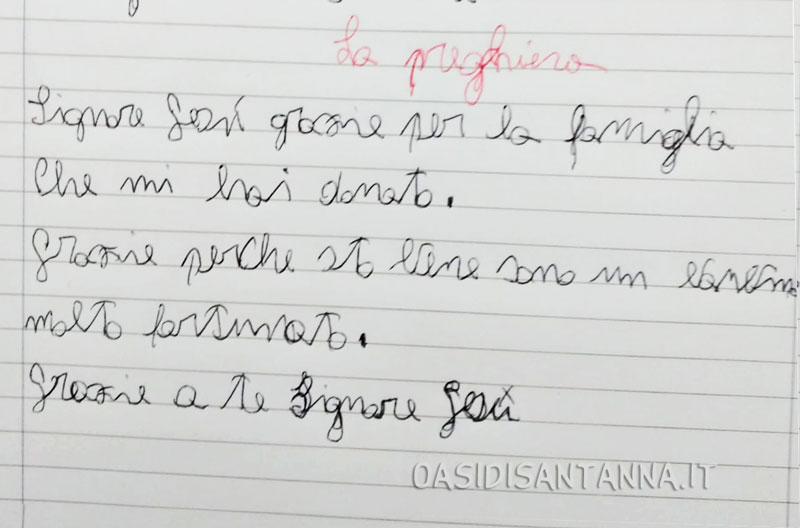 La preghiera
Signore Gesù grazie per la famiglia
che mi hai donato.
Grazie perche sto bene sono un
molto fortunato.
Grazie a te Signore Gesù
OASIDISANTANNA.IT